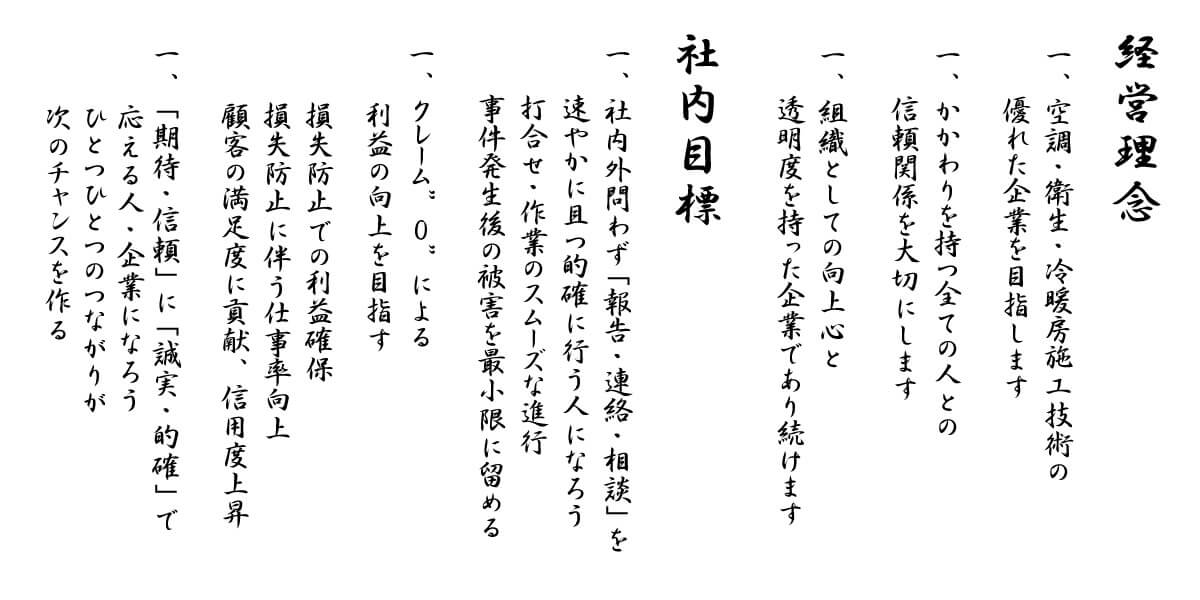 経営理念
一、空調・衛生・冷暖房施工技術の
優れた企業を目指します
一、かかわりを持つ全ての人との
信頼関係を大切にします
一、組織としての向上心と
透明度を持った企業であり続けます
社内目標
一、社内外問わず「報告・連絡・相談」を
速やかに且つ的確に行う人になろう
打合せ・作業のスムーズな進行
事件発生後の被害を最小限に留める
一、クレーム〝0〟による
利益の向上を目指す
損失防止での利益確保
損失防止に伴う仕事率向上
顧客の満足度に貢献、信用度上昇
一、「期待・信頼」に「誠実・的確」で
応える人・企業になろう
ひとつひとつのつながりが
次のチャンスを作る